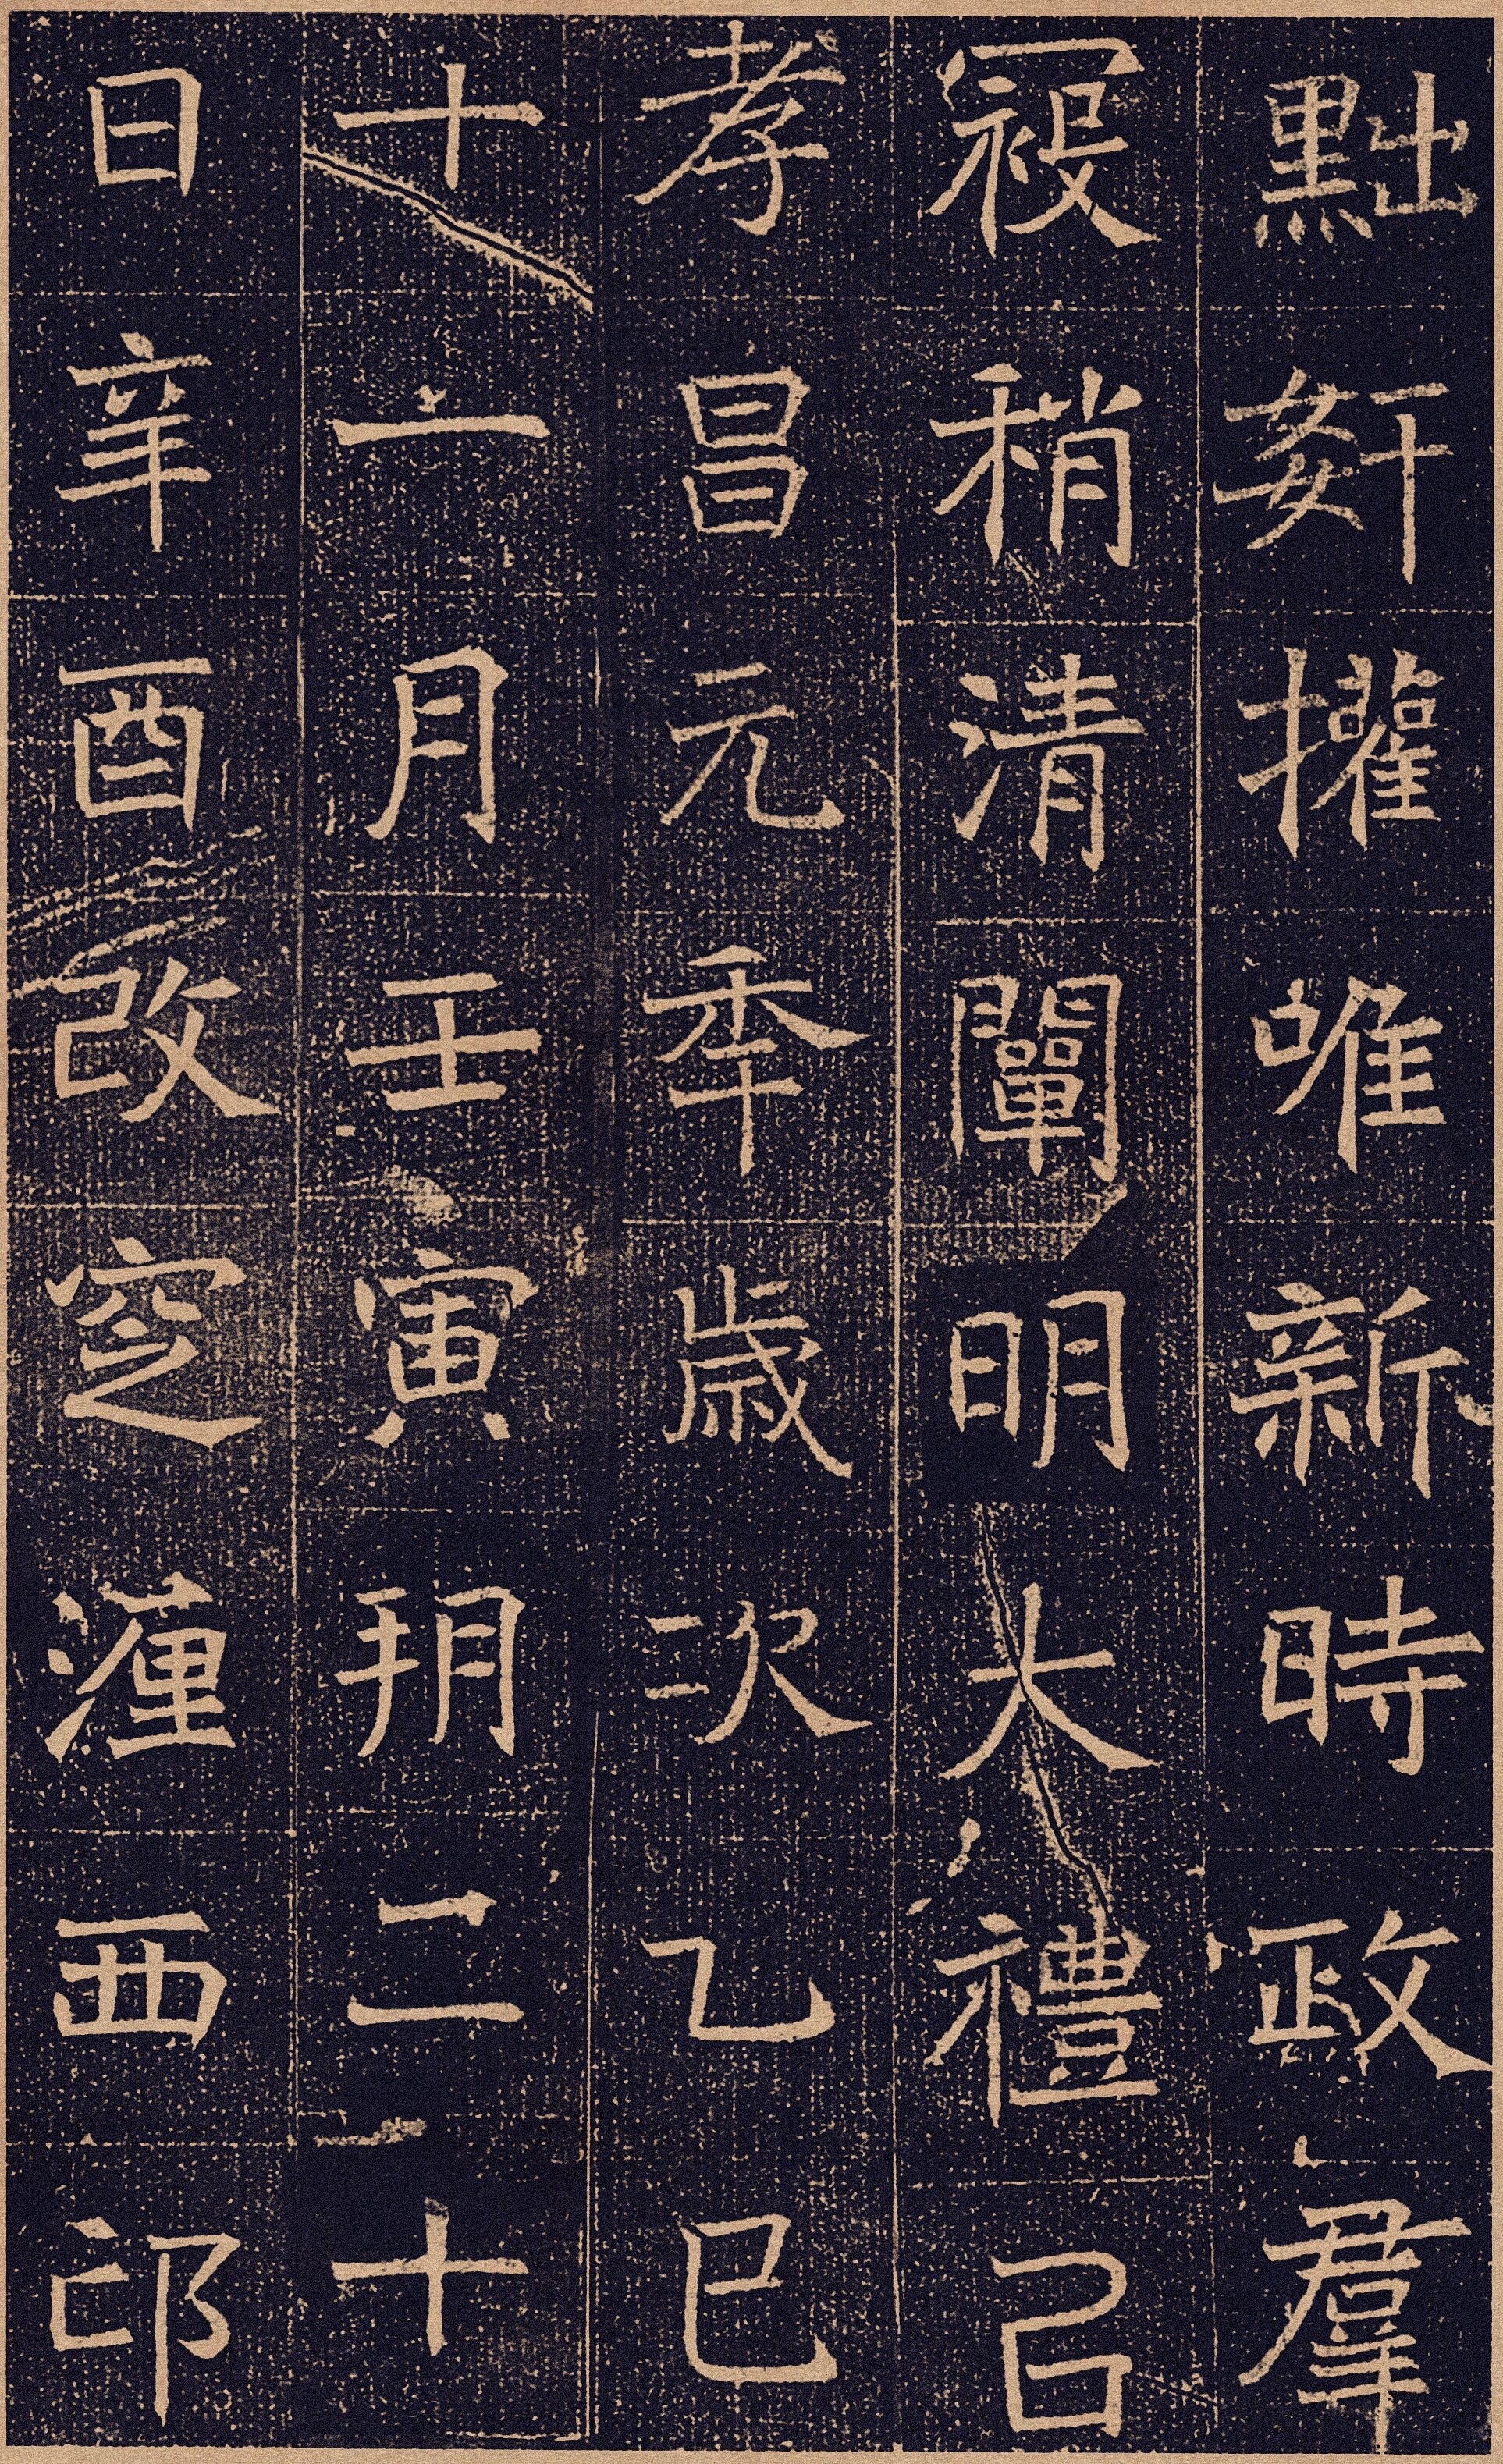 黜姧㩲唯新時政羣
寇稍清闡明大禮㠯
孝昌元秊歲次乙巳
十一月壬寅朔二十
日辛酉改窆瀍西邙